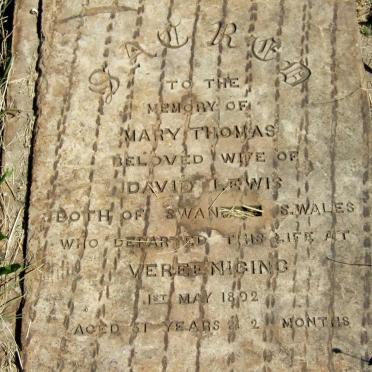 SACRED
TO THE
MEMORY OF
MARY THOMAS
BELOVED WIFE OF
DAVID LEWIS
BOTH OF SWAN S.WALES
WHO DEPARTED THIS LIFE AT
VEREENIGING
1ST MAY 1892
AGED 31 YEARS & 2 MONTHS